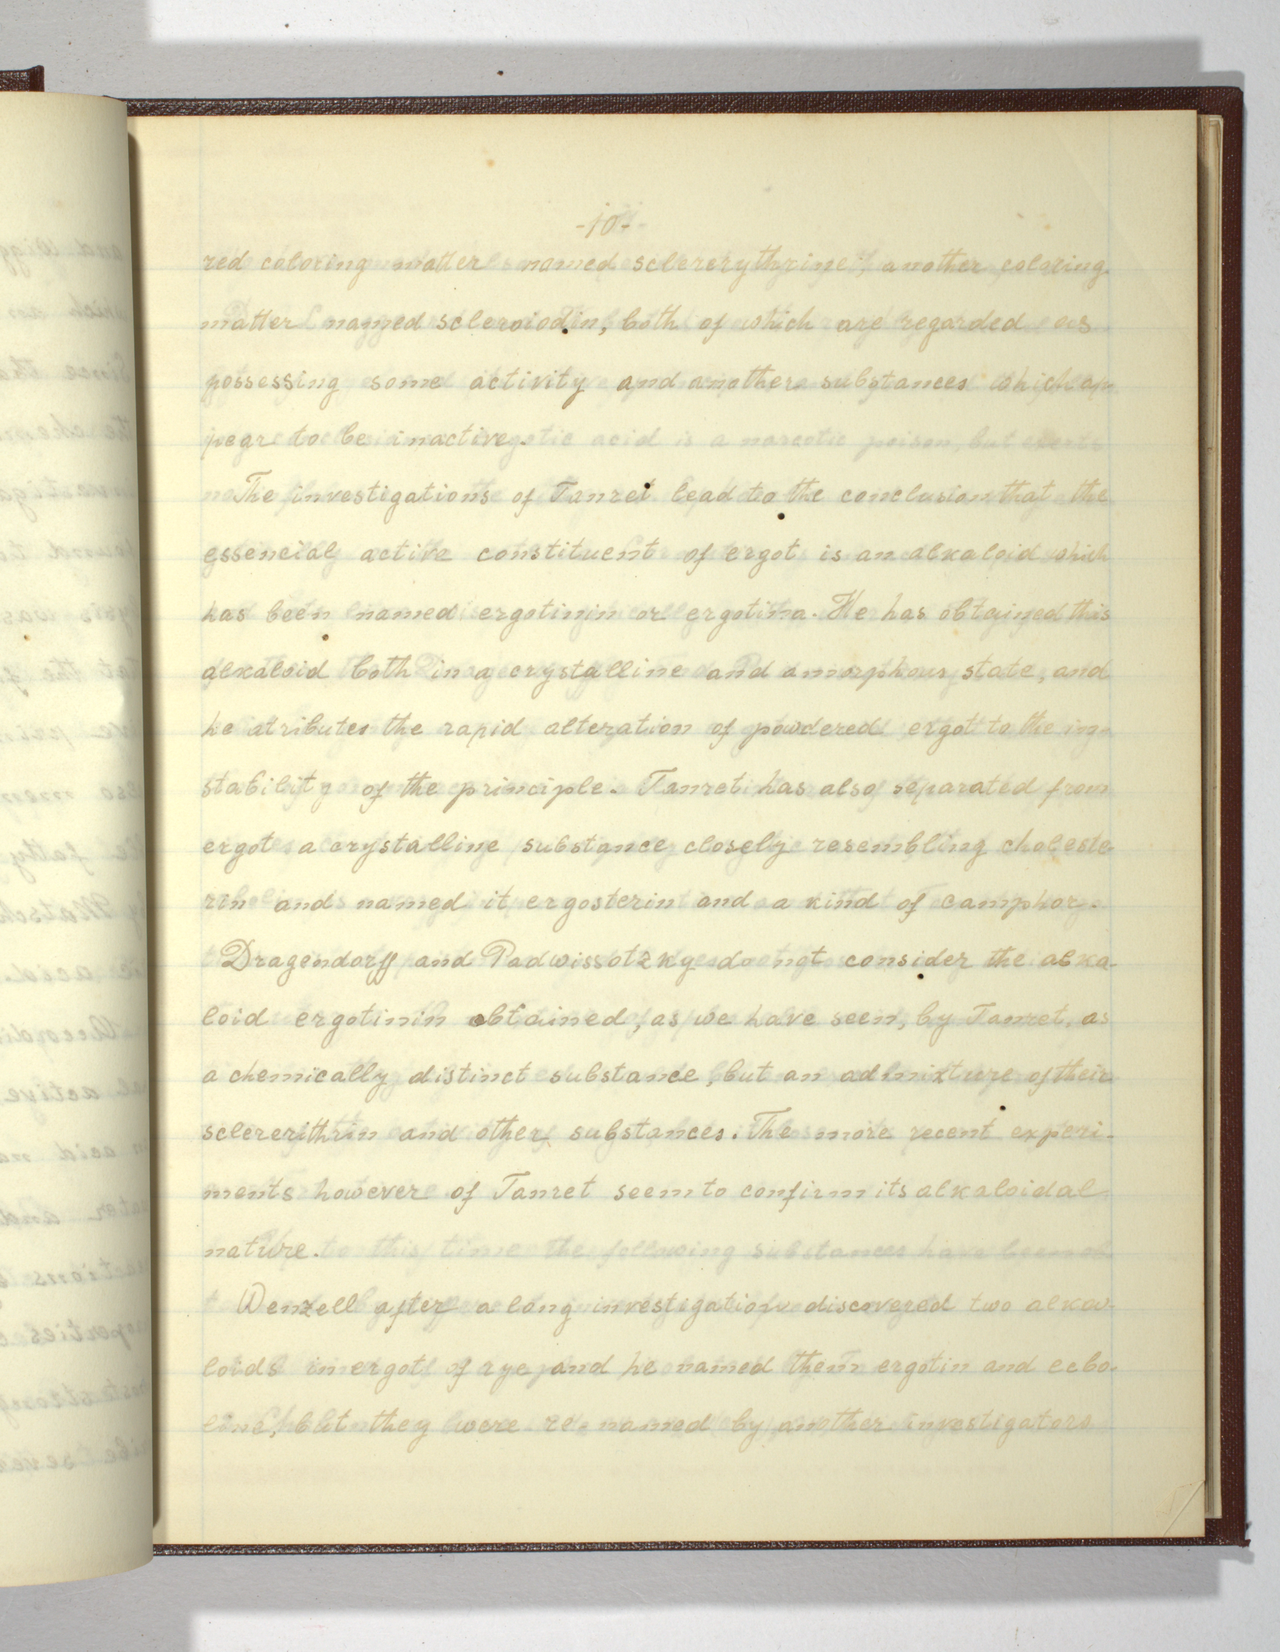 -10-
red coloring matter named sclererythrine, another coloring
matter named scleroiodin, both of which are regarded as
possessing some activity and another substances which ap
pear to be inactive.
The investigations of Tanret lead to the conclusion that the
essencial active constituent of ergot is an alkaloid which
has been named ergotinin or ergotina. He has obtained this
alkaloid both in a crystalline and amorphous state, and
he atributes the rapid alteration of powdered ergot to the in-
stability of the principle. Tanret has also separated from
ergot a crystalline substance closely resembling choleste
rin and named it ergosterin and a kind of camphor.
Dragendorff and Padwissotzky do not consider the alka-
loid ergotinin obtained, as we have seen, by Tanret, as
a chemically distinct substance, but an admixture of their
sclererithrin and other substances. The more recent experi-
ments however of Tanret seem to confirm its alkaloidal
nature.
Wenzell after a long investigation discovered two alka-
loids in ergot of rye and he named them ergotin and ecbo-
line, but they were re-named by another investigators